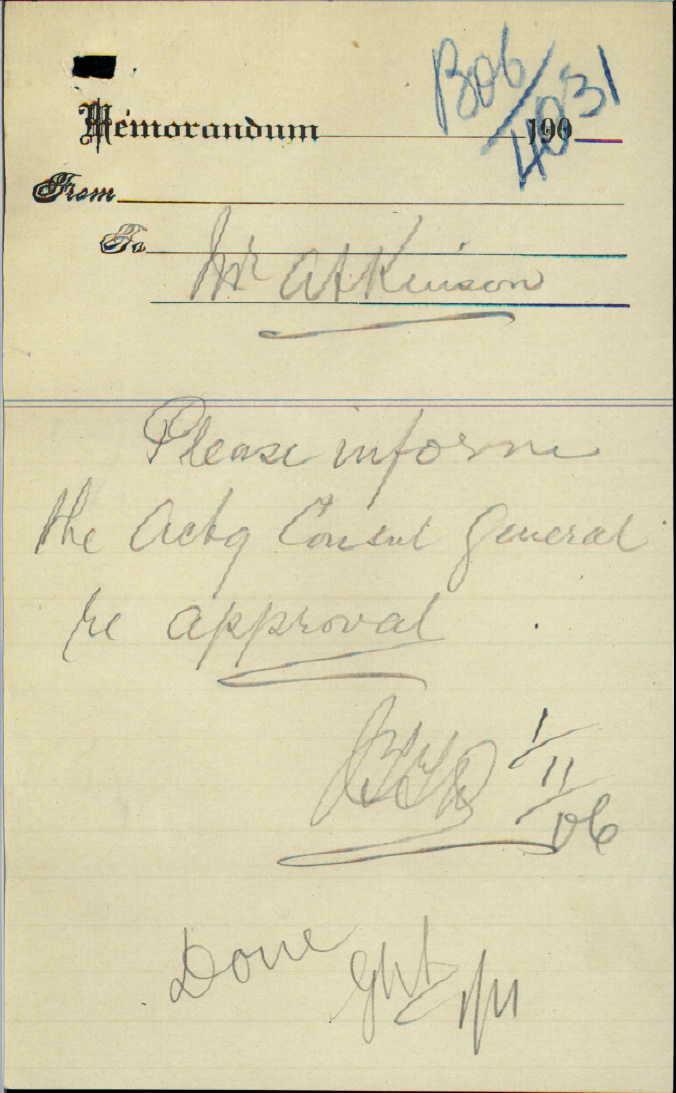 B06/4031
Memorandum 190
From
To
Mr Atkinson
Please inform
the Actg Consul General
re approval
1/11/06
Done 1/11